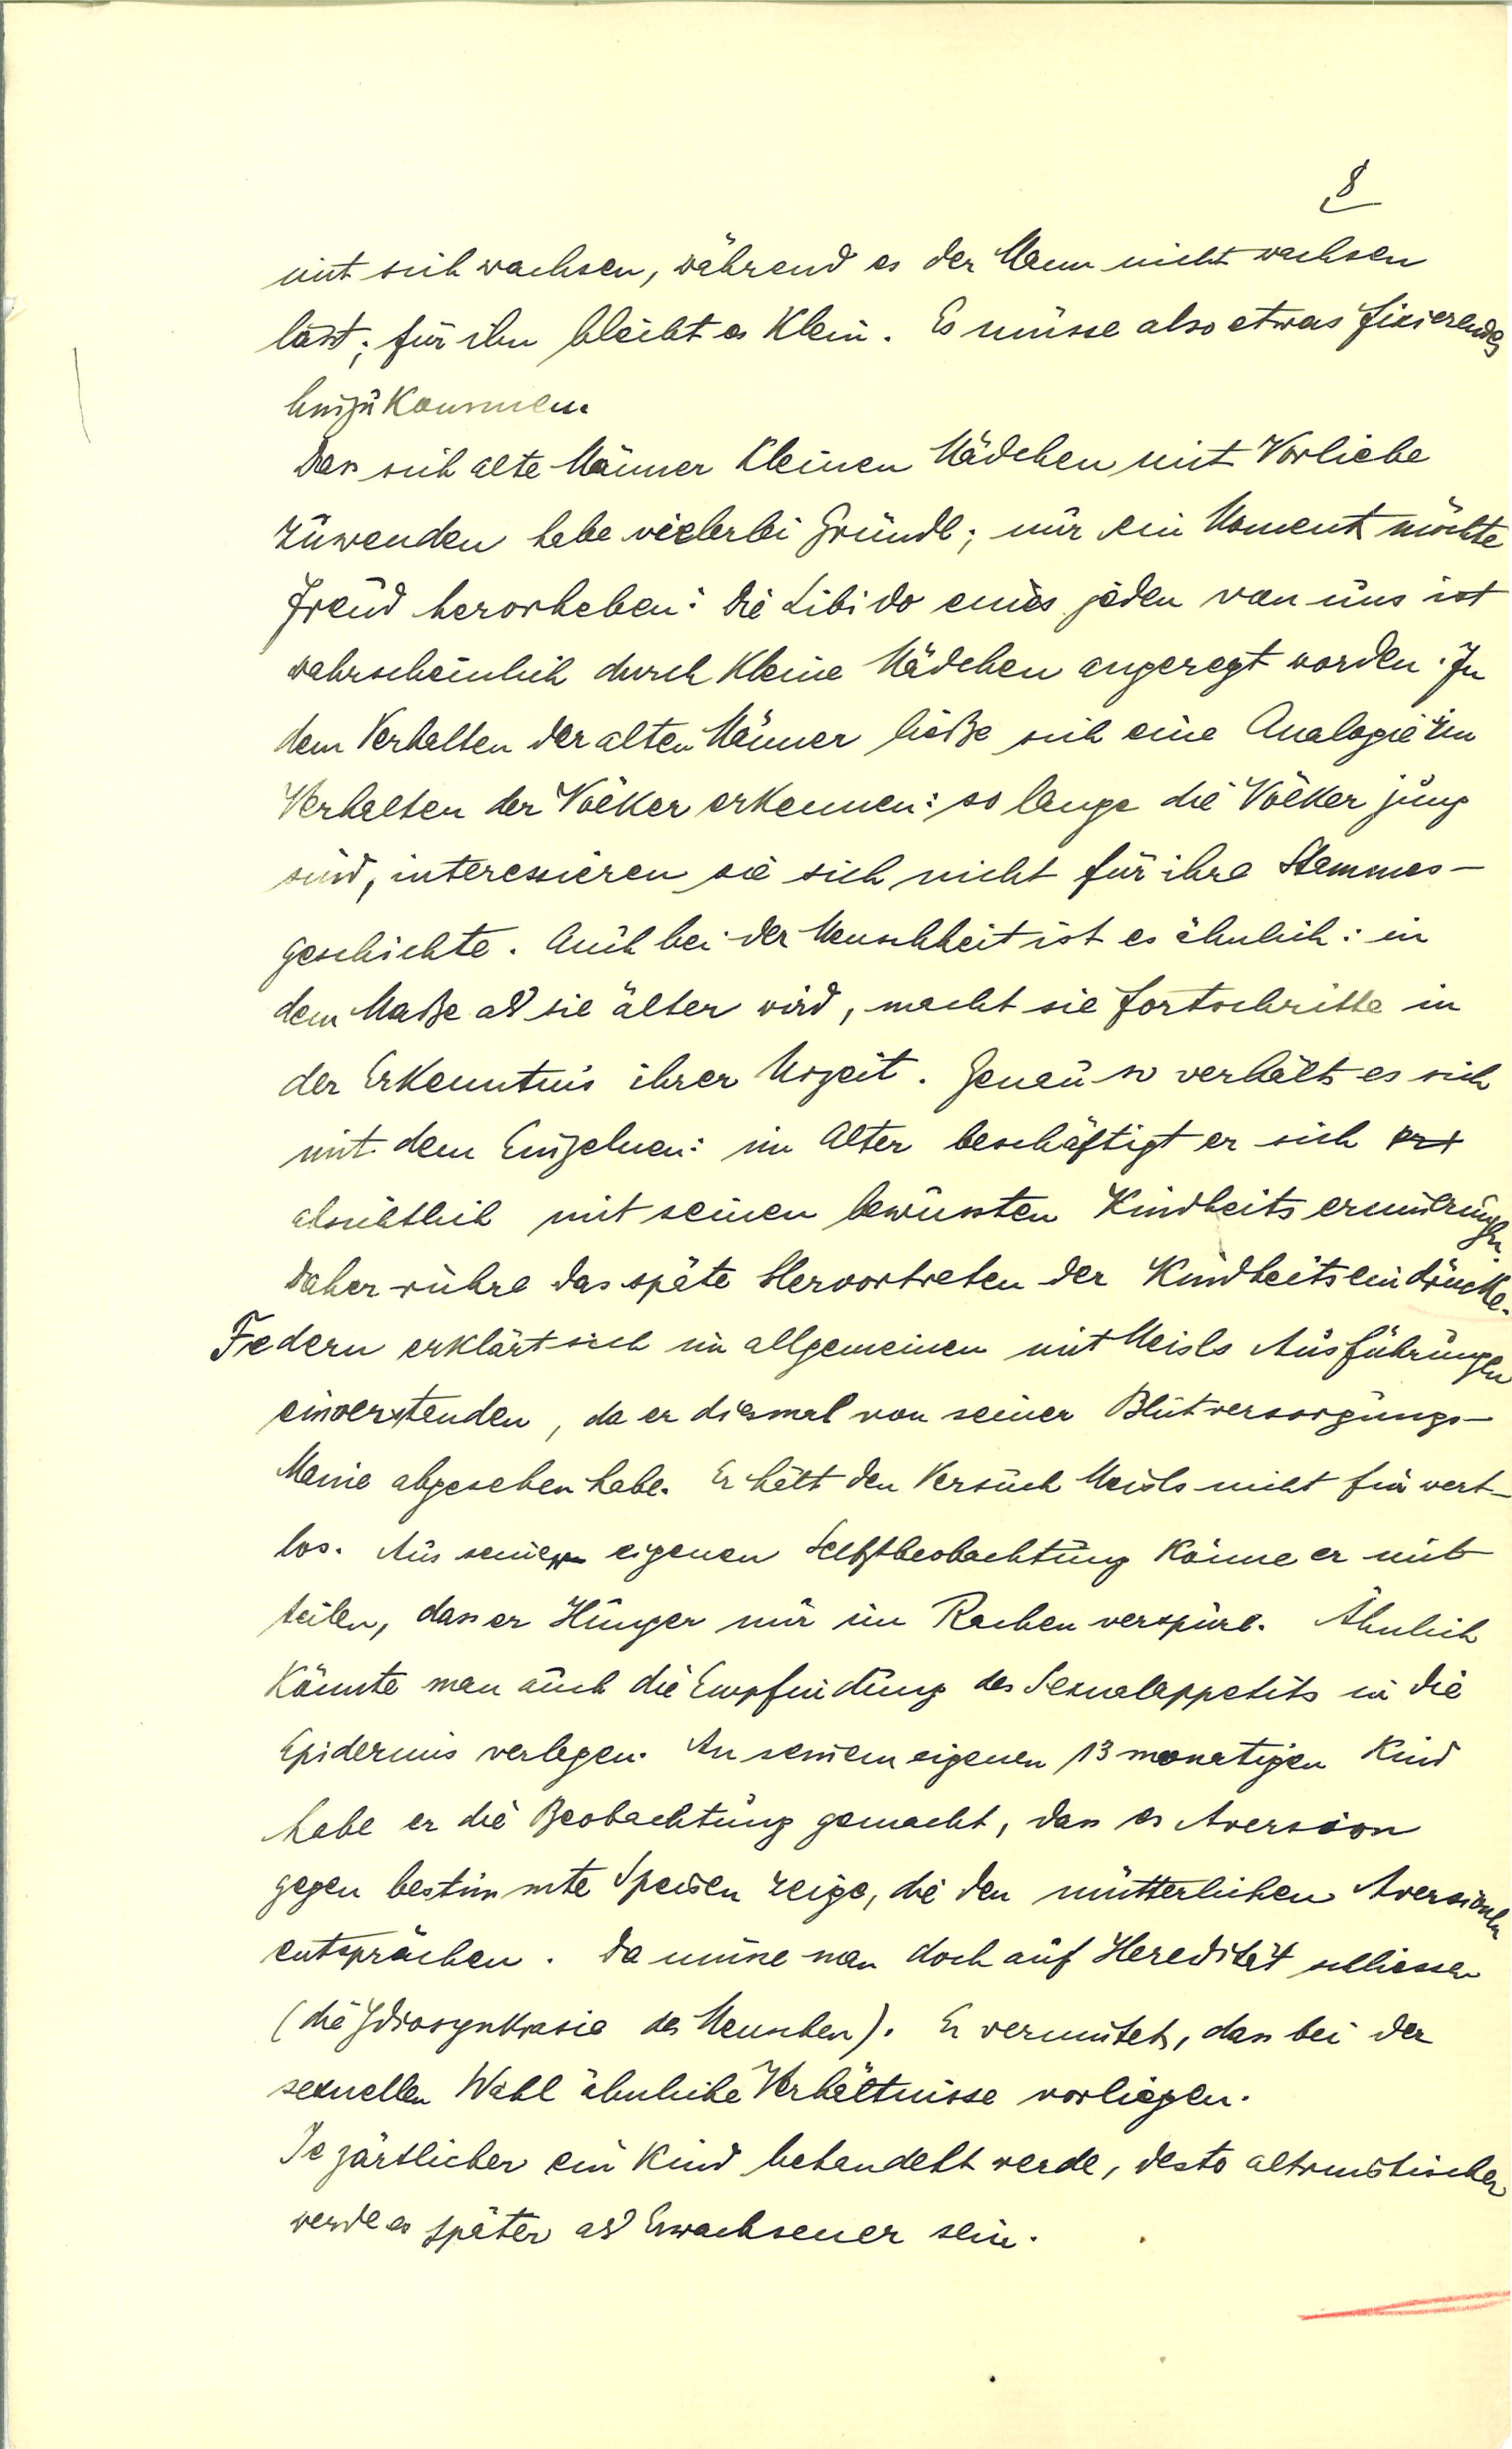 8
mit sich wachsen, während es der Mann nicht wachsen
lässt; für ihn bleibt es klein. Es müsse also etwas fixierendes
hinzukommen.
Dass sich alte Männer kleinen Mädchen mit Vorliebe
zuwenden habe vielerlei Gründe; nur ein Moment möchte
Freud hervorheben: die Libido eines jeden von uns ist
wahrscheinlich durch kleine Mädchen angeregt worden. In
dem Verhalten der alten Männer ließe sich eine Analogie zum
Verhalten der Völker erkennen: so lange die Völker jung
sind, interessieren sie sich nicht für ihre Stammes-
geschichte. Auch bei der Menschheit ist es ähnlich: in
dem Maße als sie älter wird, macht sie Fortschritte in
der Erkenntnis ihrer Urzeit. Genau so verhält es sich
mit dem Einzelnen: im Alter beschäftigt er sich
absichtlich mit seinen bewussten Kindheitserinnerungen.
Daher rühre das späte Hervortreten der Kindheitseindrücke.
Federn erklärt sich im allgemeinen mit Meisls Ausführungen
einverstanden, da er diesmal von seiner Blutversorgungs-
Manie abgesehen habe. Er hält den Versuch Meisls nicht für wert-
los. Aus seiner eigenen Selbstbeobachtung könne er mit
teilen, dass er Hunger nur im Rachen verspüre. Ähnlich
könnte man auch die Empfindung des Sexualappetits in die
Epidermis verlegen. An seinem eigenen 13 monatigen Kind
habe er die Beobachtung gemacht, dass es Aversion
gegen bestimmte Speisen zeige, die den mütterlichen Aversionen
entsprächen. Da müsse man doch auf Heredität schliessen
(die Idiosynkrasie des Menschen). Er vermutet, dass bei der
sexuellen Wahl ähnliche Verhältnisse vorliegen.
Je zärtlicher ein Kind behandelt werde, desto altruistischer
werde es später als Erwachsener sein.